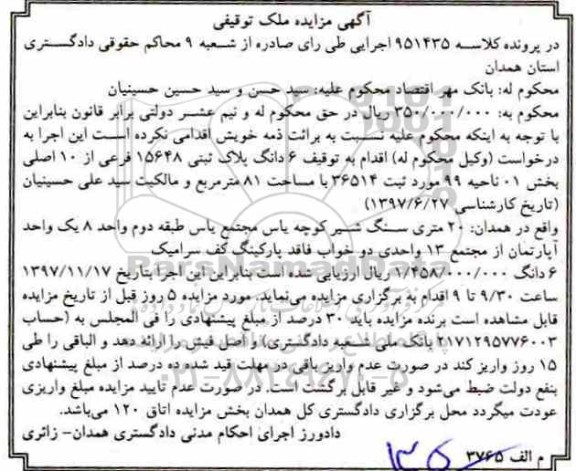 آگهی مزایده ملک توقیفی
در پرونده کلاسه ۹۵۱۴۳۵ اجرایی طی رای صادره از شعبه ۹ محاکم حقوقی دادگستری
استان همدان
محکوم له: بانک مهر اقتصاد محکوم علیه: سید حسن و سید حسین حسینیان
محکوم به: ۳۵۰/۰۰۰/۰۰۰ ریال در حق محکوم له و نیم عشر دولتی برابر قانون بنابراین
با توجه به اینکه محکوم علیه نسبت به برائت ذمه خویش اقدامی نکرده است این اجرا به
درخواست (وکیل محکوم له) اقدام به توقیف ۶ دانگ پلاک ثبتی ۱۵۶۴۸ فرعی از ۱۰ اصلی
بخش ۰۱ ناحیه ۹۹ مورد ثبت ۳۶۵۱۴ با مساحت ۸۱ مترمربع و مالکیت سید علی حسینیان
(تاریخ کارشناسی ۱۳۹۷/۶/۲۷)
واقع در همدان: ۲۰ متری سنگ شیر کوچه یاس مجتمع یاس طبقه دوم واحد ۸ یک واحد
آپارتمان از مجتمع ۱۳ واحدی دو خواب فاقد پارکینگ کف سرامیک
۶ دانگ ۱/۴۵۸/۰۰۰/۰۰۰ ریال ارزیابی شده است بنابراین این اجرا بتاریخ ۱۳۹۷/۱۱/۱۷
ساعت ۹/۳۰ تا ۹ اقدام به برگزاری مزایده می‌نماید. مورد مزایده ۵ روز قبل از تاریخ مزایده
قابل مشاهده است برنده مزایده باید ۳۰ درصد از مبلغ پیشنهادی را فی المجلس به (حساب
۲۱۷۱۲۹۵۷۷۶۰۰۳ بانک ملی شعبه دادگستری) و اصل فیش را ارائه دهد و الباقی را طی
۱۵ روز واریز کند در صورت عدم واریز باقی در مهلت قید شده، ده درصد از مبلغ پیشنهادی
بنفع دولت ضبط می‌شود و غیر قابل برگشت است. در صورت عدم تایید مزایده مبلغ واریزی
عودت میگردد محل برگزاری دادگستری کل همدان بخش مزایده اتاق ۱۲۰ می‌باشد.
دادورز اجرای احکام مدنی دادگستری همدان- زائری
م الف ۳۷۶۵
ParsNamadData
۰۲۱-۸۸۳۴۹۶۷۰-۵